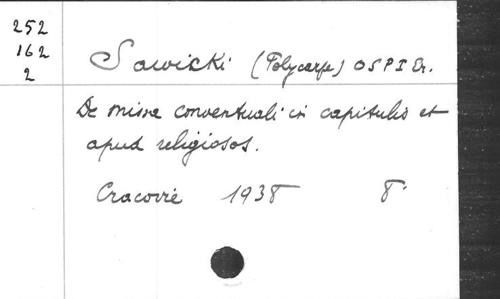 252
162
2
Sawicki (Polycarpe) OSPI Er.
De missa conventuali in capitulis et
apud religiosos.
Cracovie 1938 8°